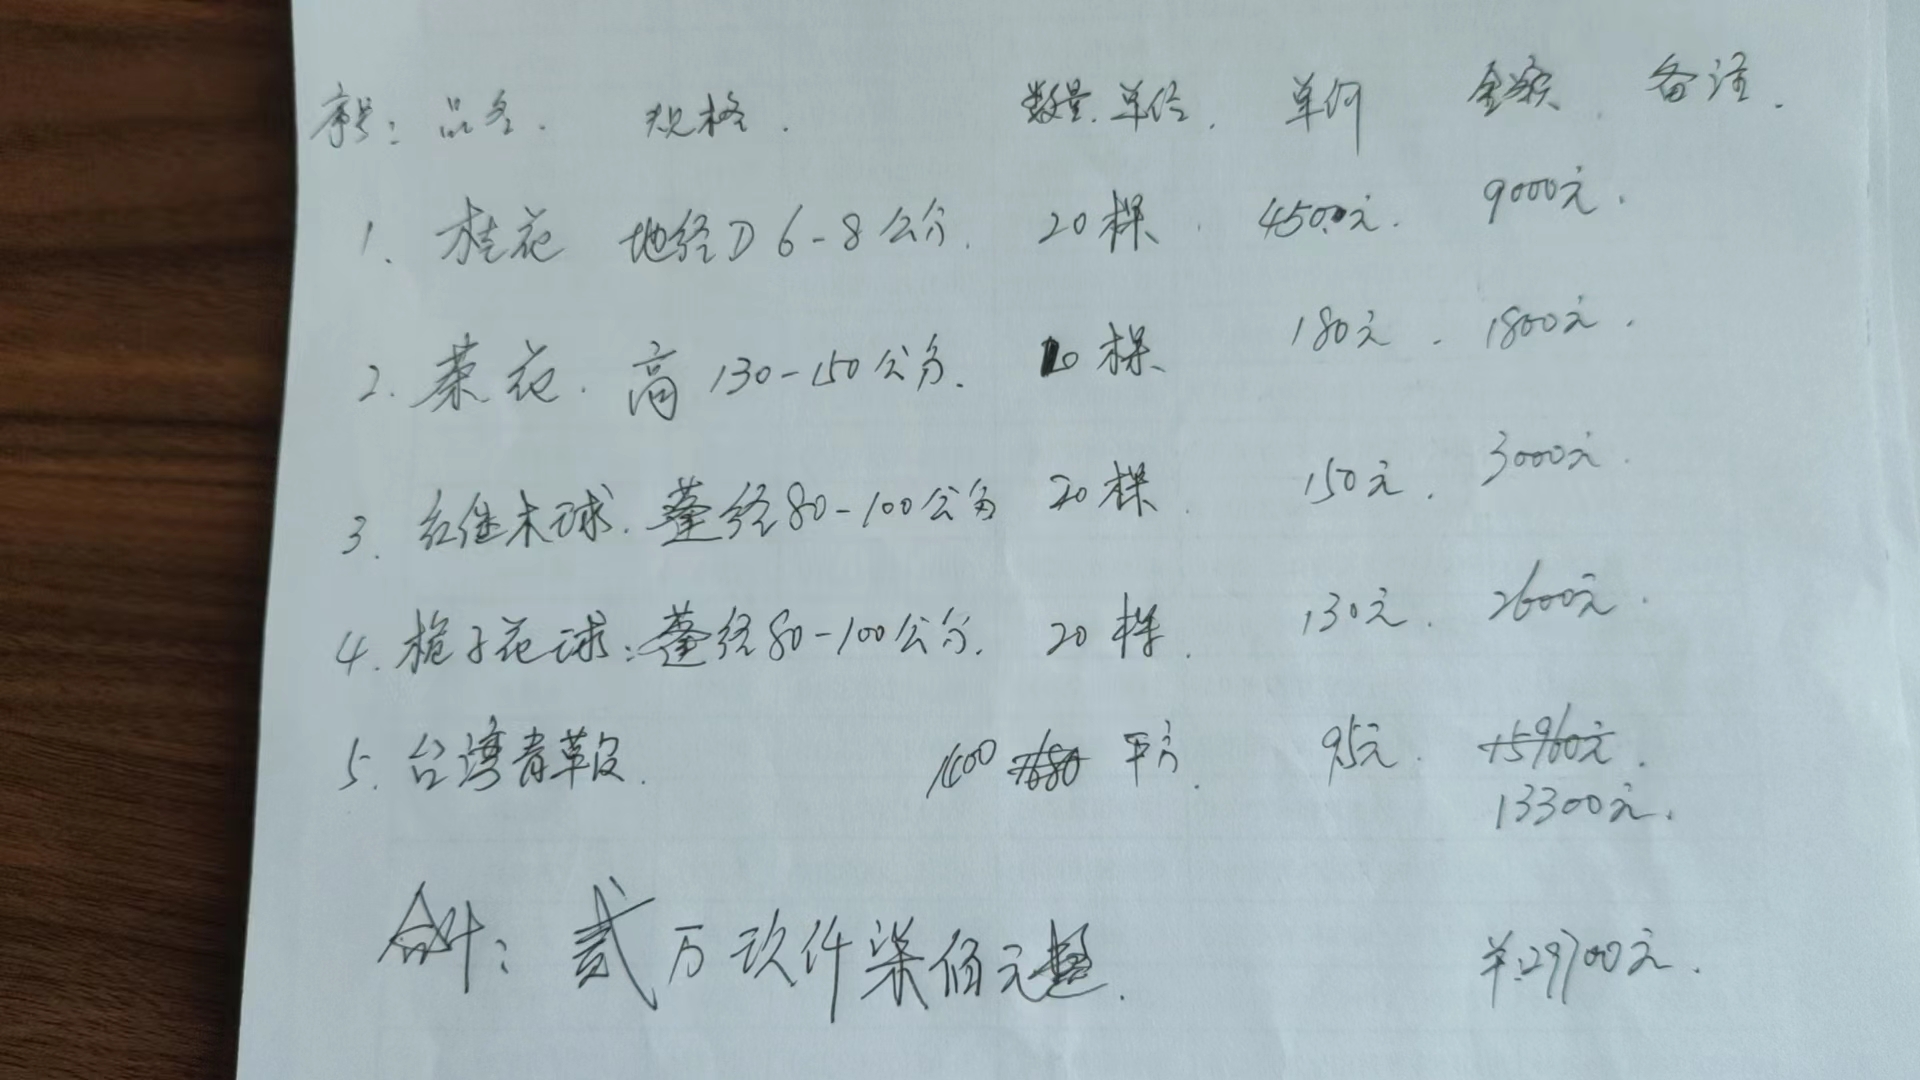 序号: 品名. 规格. 数量. 单位. 单价 金额. 备注.
1. 桂花 地径D6-8公分. 20棵. 450元. 9000元.
2. 茶花. 高130-150公分. 10棵 180元. 1800元.
3. 红继木球. 蓬径80-100公分 20棵. 150元. 3000元.
4. 栀子花球: 蓬径80-100公分. 20棵. 130元. 2600元.
5. 台湾青草皮. 1400 1680 平方. 9.5元. 15960元.
13300元.
合计: 贰万玖仟柒佰元整. ¥:29700元.